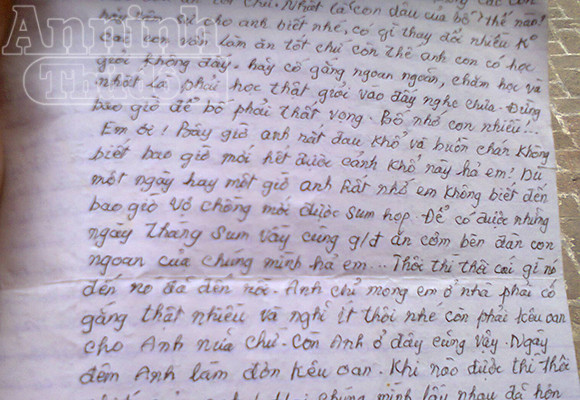 chứ. Nhất là con dâu của bố? Thế nào!
sự cho anh biết nhé, có gì thay đổi nhiều K⁰
vẫn làm ăn tốt chứ còn thế anh con có học
giỏi không đấy. hãy cố gắng ngoan ngoãn, chăm học và
nhất là phải học thật giỏi vào đấy nghe chưa. Đừng
bao giờ để bố phải thất vọng. Bố nhớ con nhiều!..
Em ơi! Bây giờ anh rất đau khổ và buồn chán không
biết bao giờ mới hết được cảnh khổ này hả em! Dù
một ngày hay một giờ anh rất nhớ em không biết đến
bao giờ vợ chồng mới được sum họp. Để có được những
ngày tháng sum vầy cùng g/đ ăn cơm bên đàn con
ngoan của chúng mình hả em... Thôi thì thôi cái gì nó
đến nó đã đến rồi. Anh chỉ mong em ở nhà phải cố
gắng thật nhiều và nghỉ ít thôi nhé còn phải kêu oan
cho Anh nữa chứ. Còn Anh ở đây cũng vậy. Ngày
đêm Anh làm đơn kêu oan. Khi nào được thì thôi
chúng mình lấy nhau đã hơn
An ninh
Thủ đô